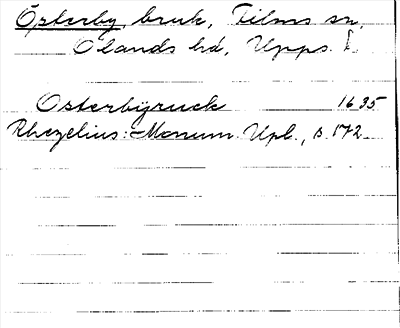 Österby bruk, Films sn,
Olands hd, Upps. l.
Osterbÿruck 1635
Rhezelius: Monum. Upl., s. 172